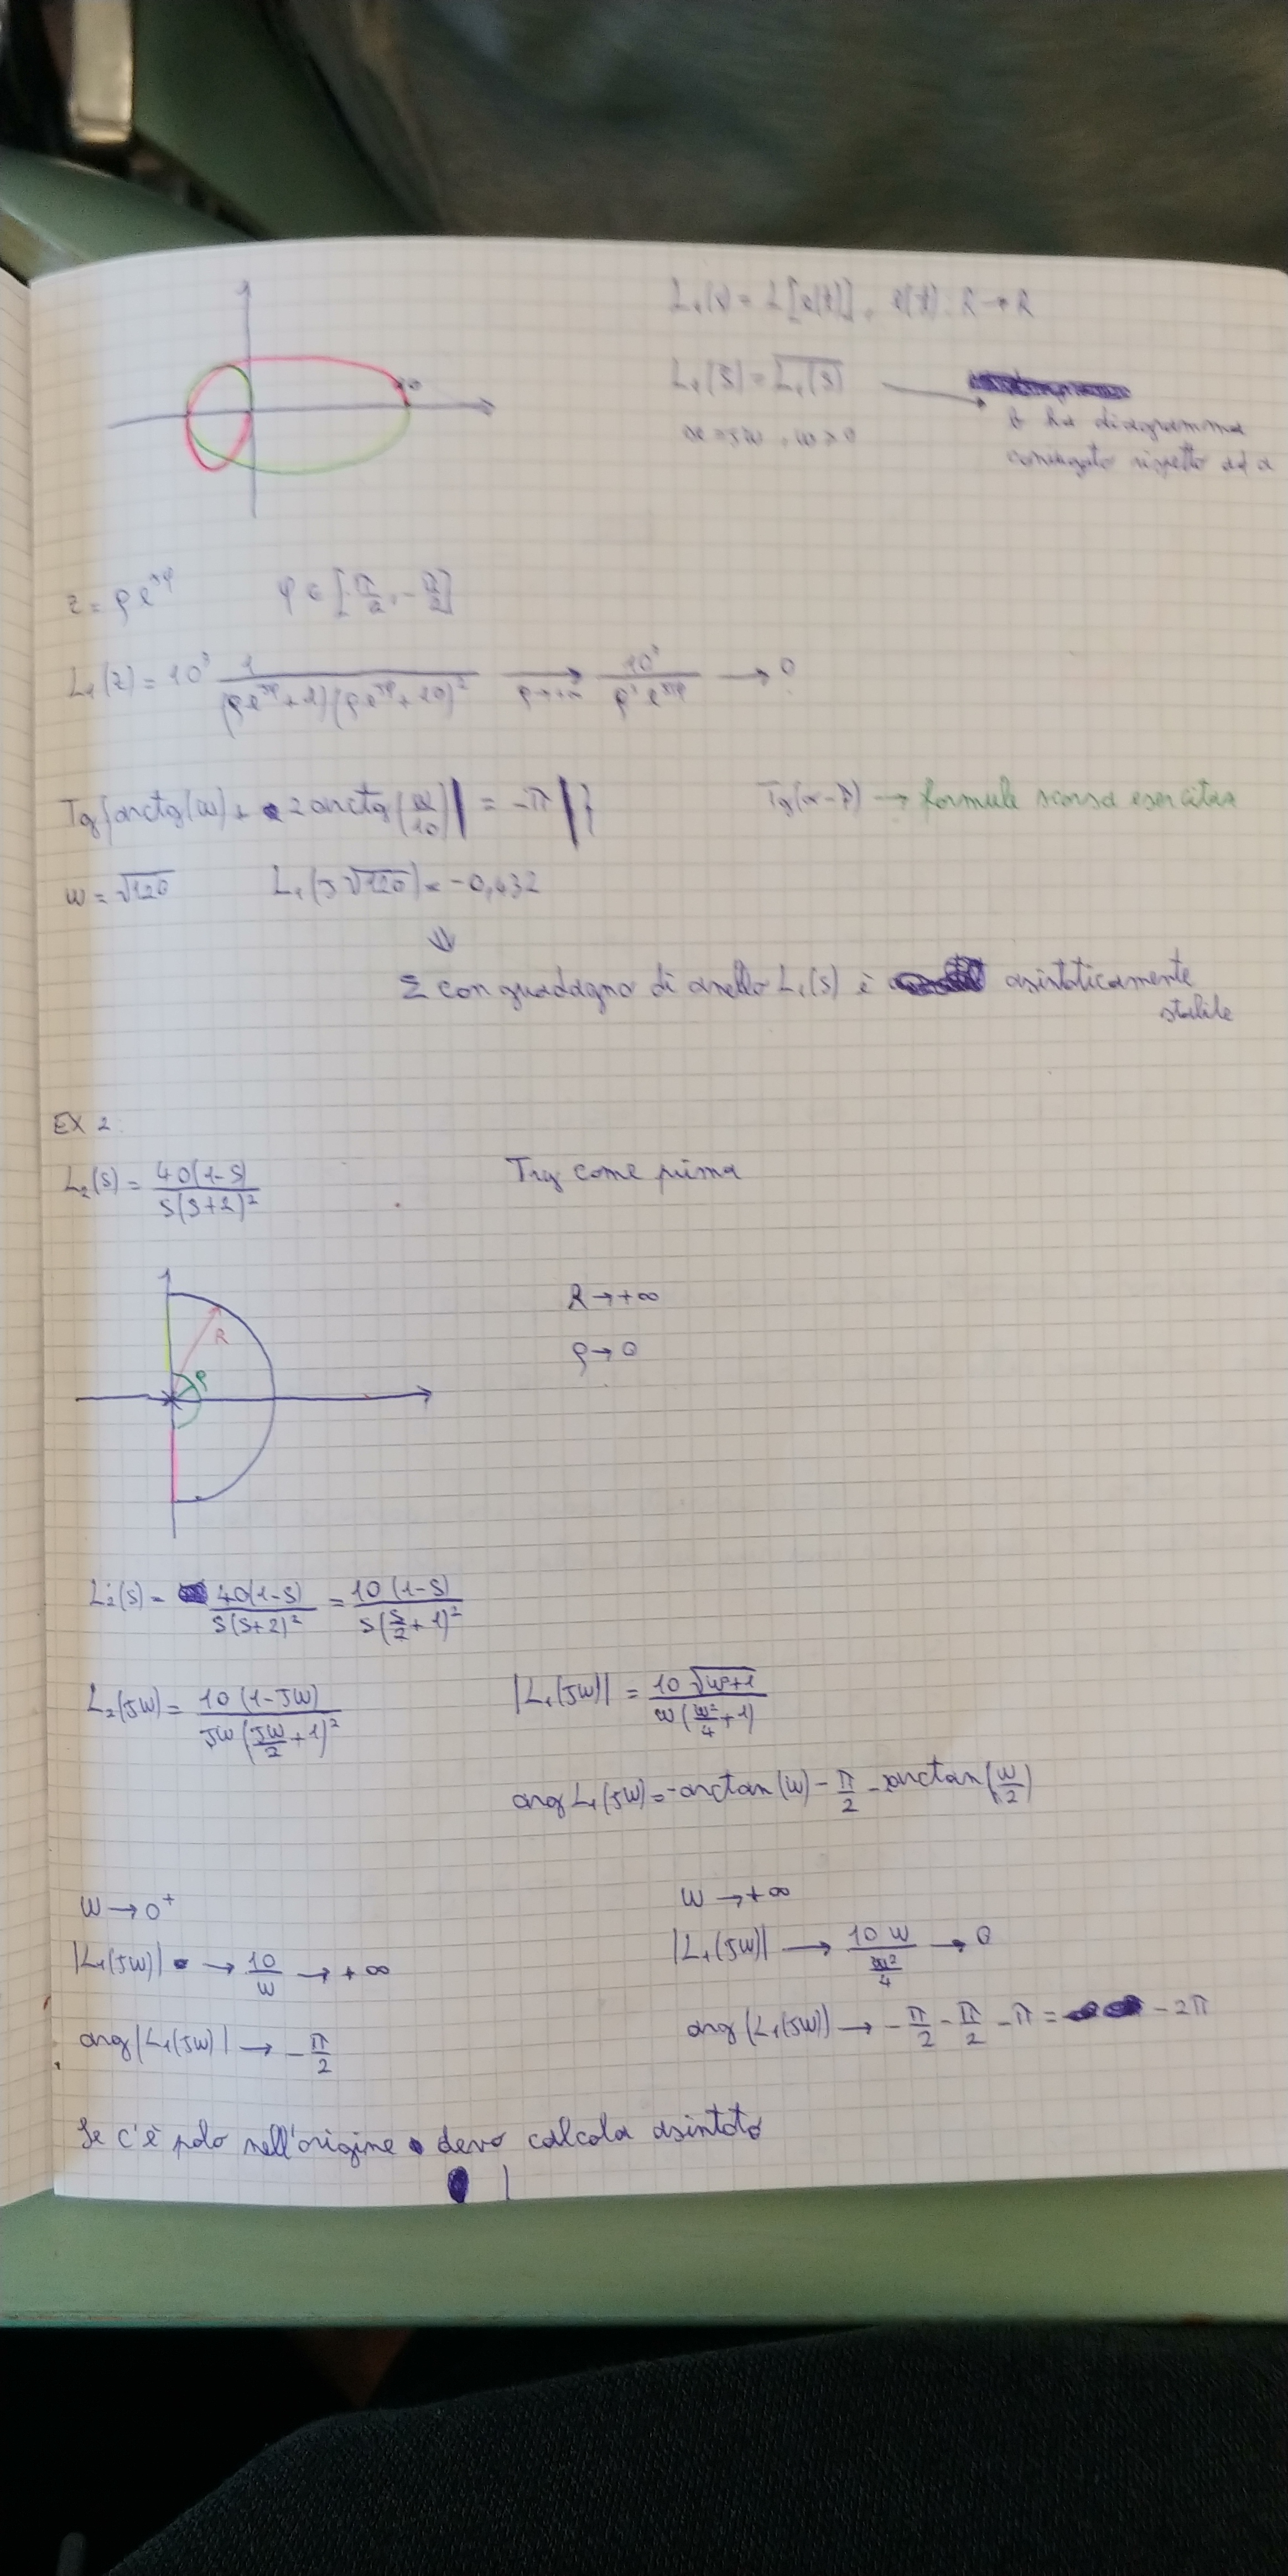 L₁(s) = L[l(t)], l(t): R → R
L₁(s̄) = \overline{L₁(s)} →
s = jw, w > 0
b ha diagramma
coniugato rispetto ad a
10
z = ρe^{jφ} φ ∈ [π/2, -π/2]
L₁(z) = 10³ 1/((ρe^{jφ}+1)(ρe^{jφ}+10)²) → ρ→+∞ 10³/(ρ³e^{j3φ}) → 0
Tg{arctg(w) + 2 arctg(w/10) = -π}
Tg(α-β) → formule scorsa esercitaz
w = √120 L₁(j√120) = -0,432
⇓
Σ con guadagno di anello L₁(s) è asintoticamente
stabile
EX 2:
L₂(s) = 40(1-s)/(s(s+2)²) Try come prima
R → +∞
ρ → 0
R
ρ
L₂(s) = 40(1-s)/(s(s+2)²) = 10(1-s)/(s(s/2+1)²)
L₂(jw) = 10(1-jw)/(jw(jw/2+1)²) |L₁(jw)| = 10√(w²+1)/(w(w²/4+1))
arg L₁(jw) = -arctan(w) - π/2 - 2arctan(w/2)
w → 0⁺ w → +∞
|L₁(jw)| → 10/w → +∞ |L₁(jw)| → 10 w/(w²/4) → 0
arg(L₁(jw)) → -π/2 arg(L₁(jw)) → -π/2 - π/2 - π = -2π
Se c'è polo nell'origine devo calcola asintoto